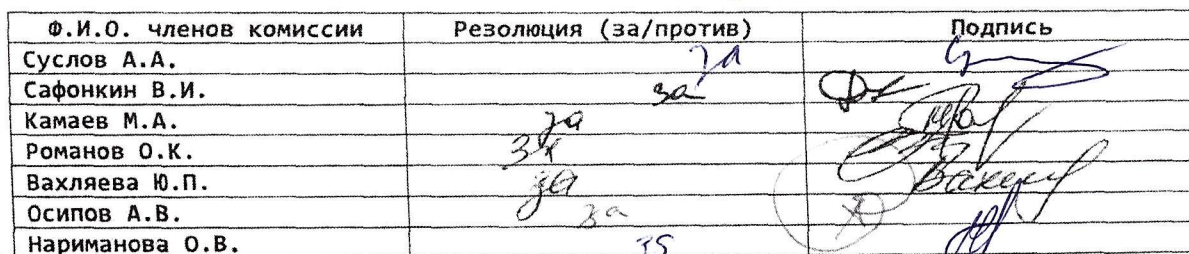 Ф.И.О. членов комиссии Резолюция (за/против) Подпись
Суслов А.А. за
Сафонкин В.И. за
Камаев М.А. за
Романов О.К. за
Вахляева Ю.П. за
Осипов А.В. за
Нариманова О.В. за